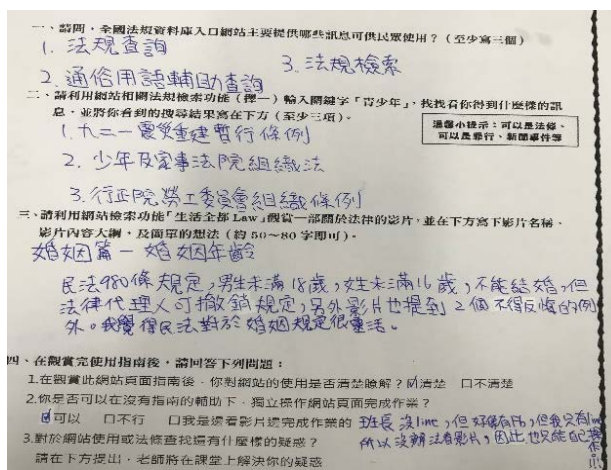 一、請問，全國法規資料庫入口網站主要提供哪些訊息可供民眾使用？(至少寫三個)
1. 法規查詢
3. 法規檢索
2. 通俗用語輔助查詢
二、請利用網站相關法規檢索功能（擇一）輸入關鍵字「青少年」，找找看你得到什麼樣的訊
息，並將你看到的搜尋結果寫在下方（至少三項）。
溫馨小提示：可以是法條、
可以是罪行、新聞事件等
1. 九二一震災重建暫行條例
2. 少年及家事法院組織法
3. 行正院勞工委員會組織條例
三、請利用網站檢索功能「生活全都Law」觀賞一部關於法律的影片，並在下方寫下影片名稱、
影片內容大綱，及簡單的想法（約50～80字即可）。
婚姻篇－婚姻年齡
民法980條規定，男生未滿18歲，女生未滿16歲，不能結婚，但
法律代理人可撤銷規定，另外影片也提到2個不得反悔的例
外。我覺得民法對於婚姻規定很靈活。
四、在觀賞完使用指南後，請回答下列問題：
1.在觀賞此網站頁面指南後，你對網站的使用是否清楚瞭解？☑清楚 □不清楚
2.你是否可以在沒有指南的輔助下，獨立操作網站頁面完成作業？
☑可以 □不行 □我是邊看影片邊完成作業的
班長沒line，但好像有FB，但我只有line
所以沒辦法看影片，因此也只能自己
3.對於網站使用或法條查找還有什麼樣的疑惑？
請在下方提出，老師將在課堂上解決你的疑惑